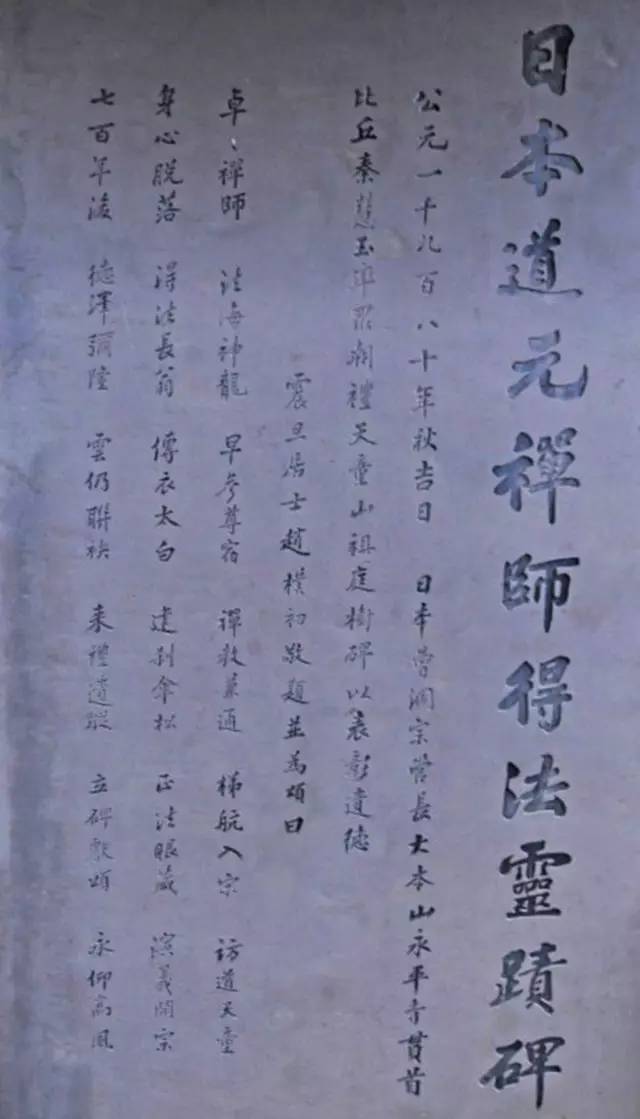 日本道元禪師得法靈蹟碑
公元一千九百八十年秋吉日 日本曹洞宗管長大本山永平寺貫首
比丘秦慧玉率眾朝禮天童山祖庭樹碑以表彰遺德
震旦居士趙樸初敬題並為頌曰
卓〻禪師 法海神龍 早參尊宿 禪教兼通 梯航入宋 訪道天童
身心脫落 得法長翁 傳衣太白 建刹傘松 正法眼藏 演義開宗
七百年後 德澤彌隆 雲仍聯袂 來禮遺蹤 立碑獻頌 永仰高風